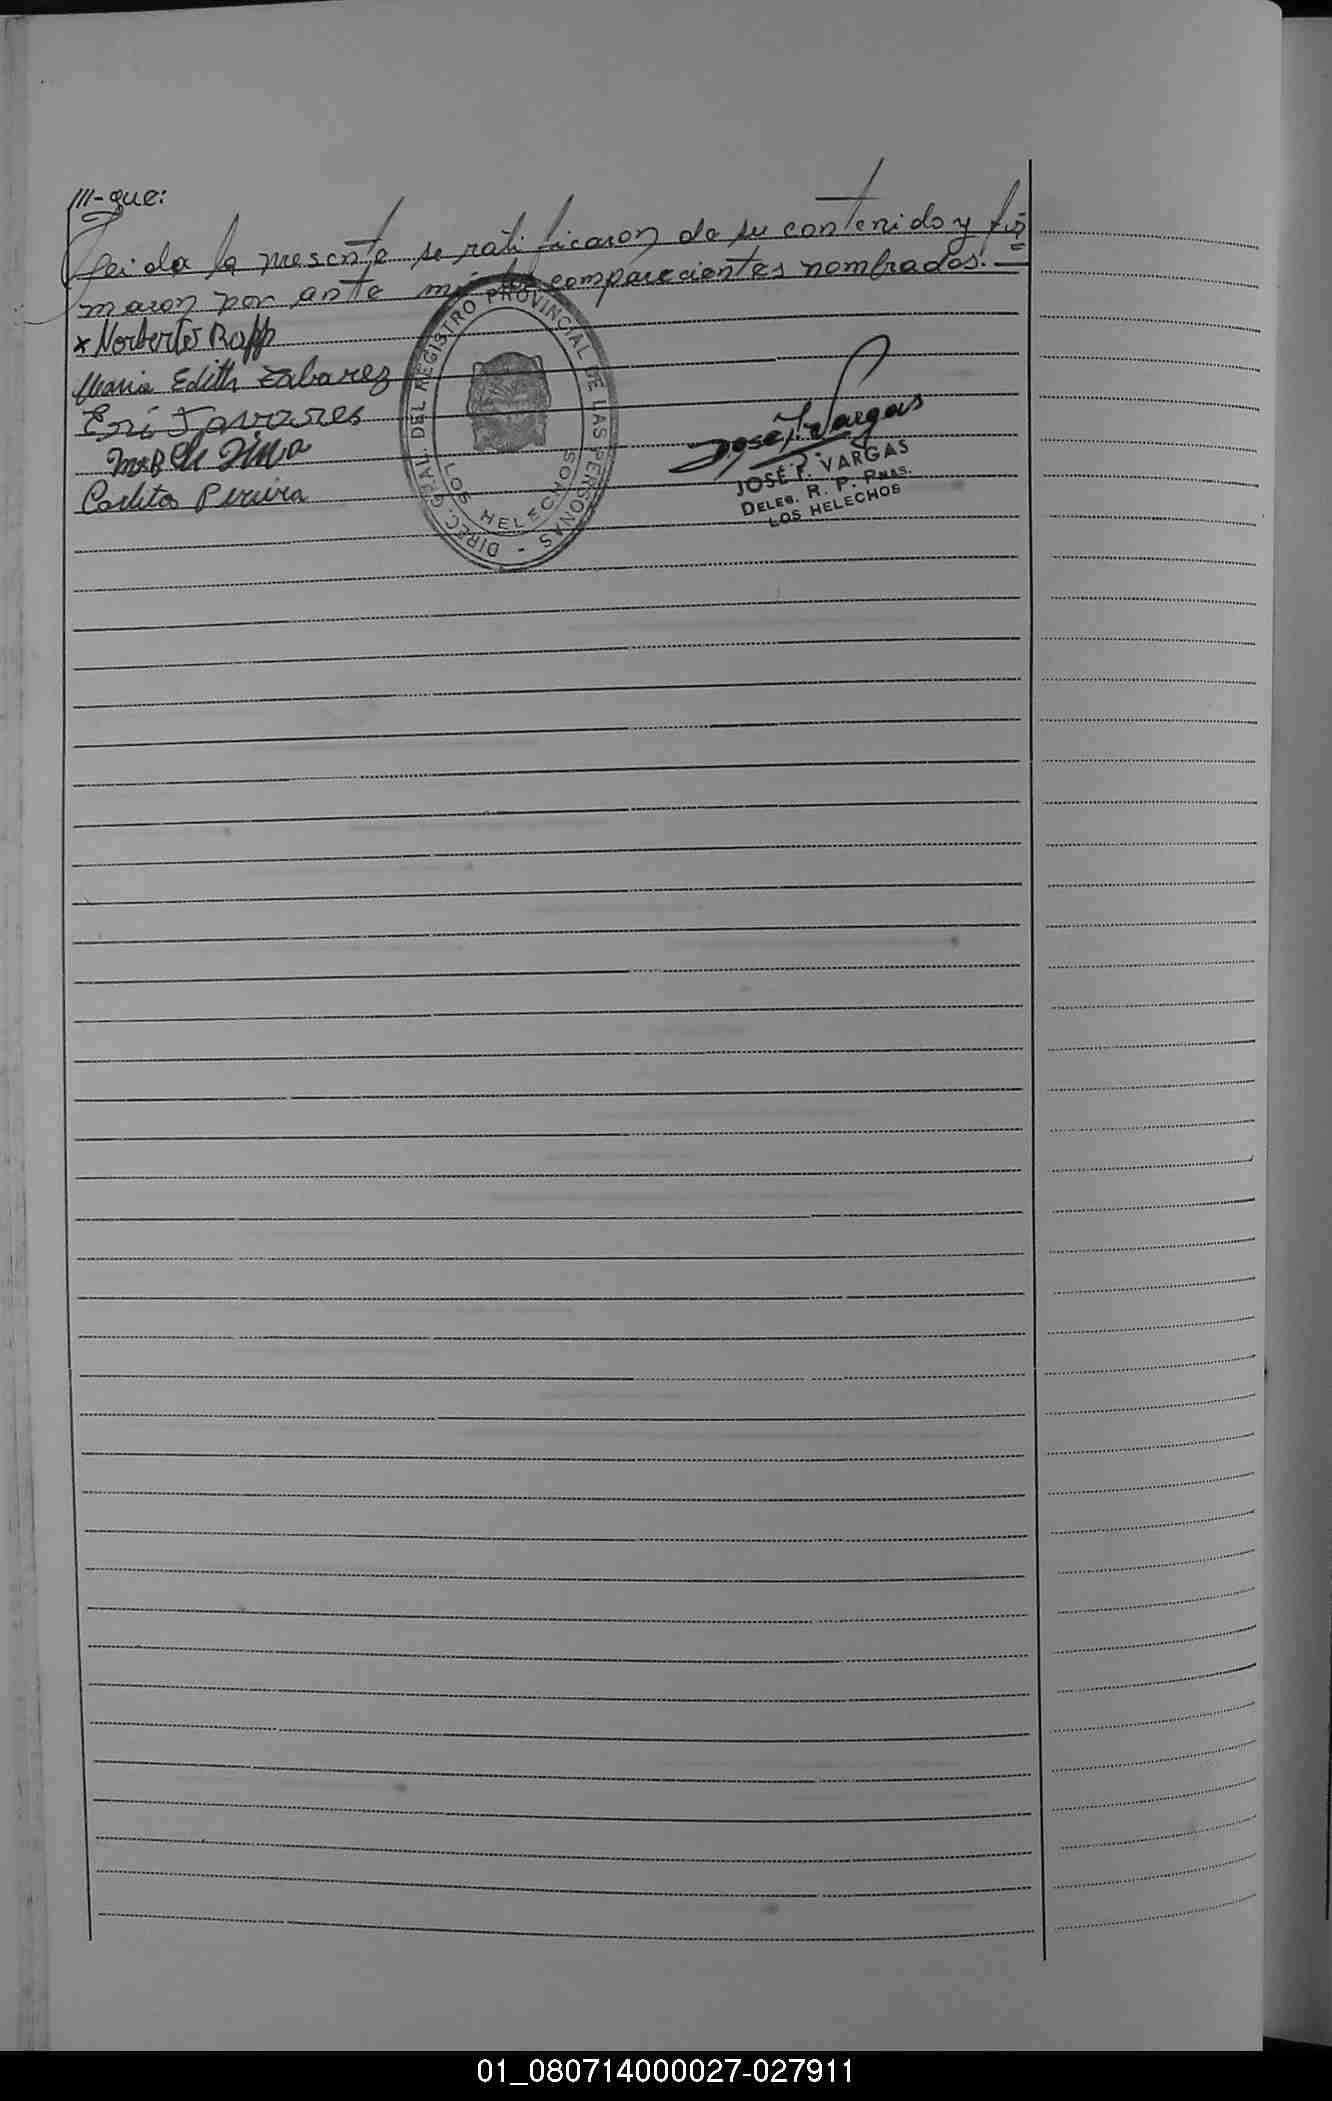 ///-que:
Leida la presente se ratificaron de su contenido y fir=
maron por ante mi los comparecientes nombrados.—
x Norberto Rapp
Maria Edith Tabarez
Eni Tavares
de Lima
Carlitos Pereira
DIREC. GRAL. DEL REGISTRO PROVINCIAL DE LAS PERSONAS -
LOS HELECHOS
José F. Vargas
JOSÉ F. VARGAS
DELEG. R. P. PNAS.
LOS HELECHOS
01_080714000027-027911